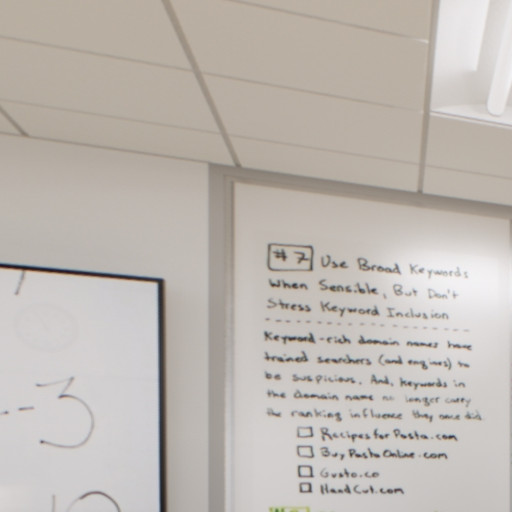 #7 Use Broad Keywords
When Sensible, But Don't
Stress Keyword Inclusion
Keyword-rich domain names have
trained searchers (and engines) to
be suspicious. And, keywords in
the domain name no longer carry
the ranking influence they once did.
RecipesforPasta.com
BuyPastaOnline.com
Gusto.co
HandCut.com
-3